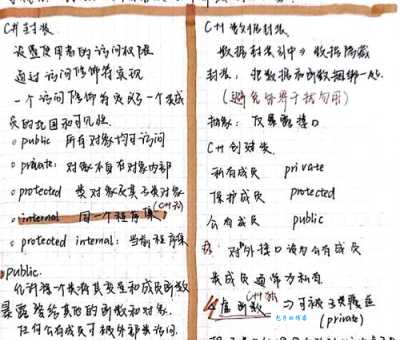 C# 封装
设置使用者的访问权限
通过访问修饰符实现
一个访问修饰符定义了一个类成
员的范围和可见性.
public 所有对象均可访问
private: 对象本身在对象内部
protected 类对象及其子类对象
internal 同一个程序集 (C#
protected internal: 当前程序集
public.
允许将一个类的其变量和成员函数
暴露给其他的函数和对象.
任何公有成员可被外部类访问.
C++ 数据封装
数据封装 引申 → 数据隐藏
封装: 把数据和函数捆绑一起.
(避免外界干扰
抽象: 仅暴露接口
C++
私有成员 private
保护成员 protected
公有成员 public
对外接口 公有成员
类成员通常为私有
虚函数 可被子类覆盖
(private)